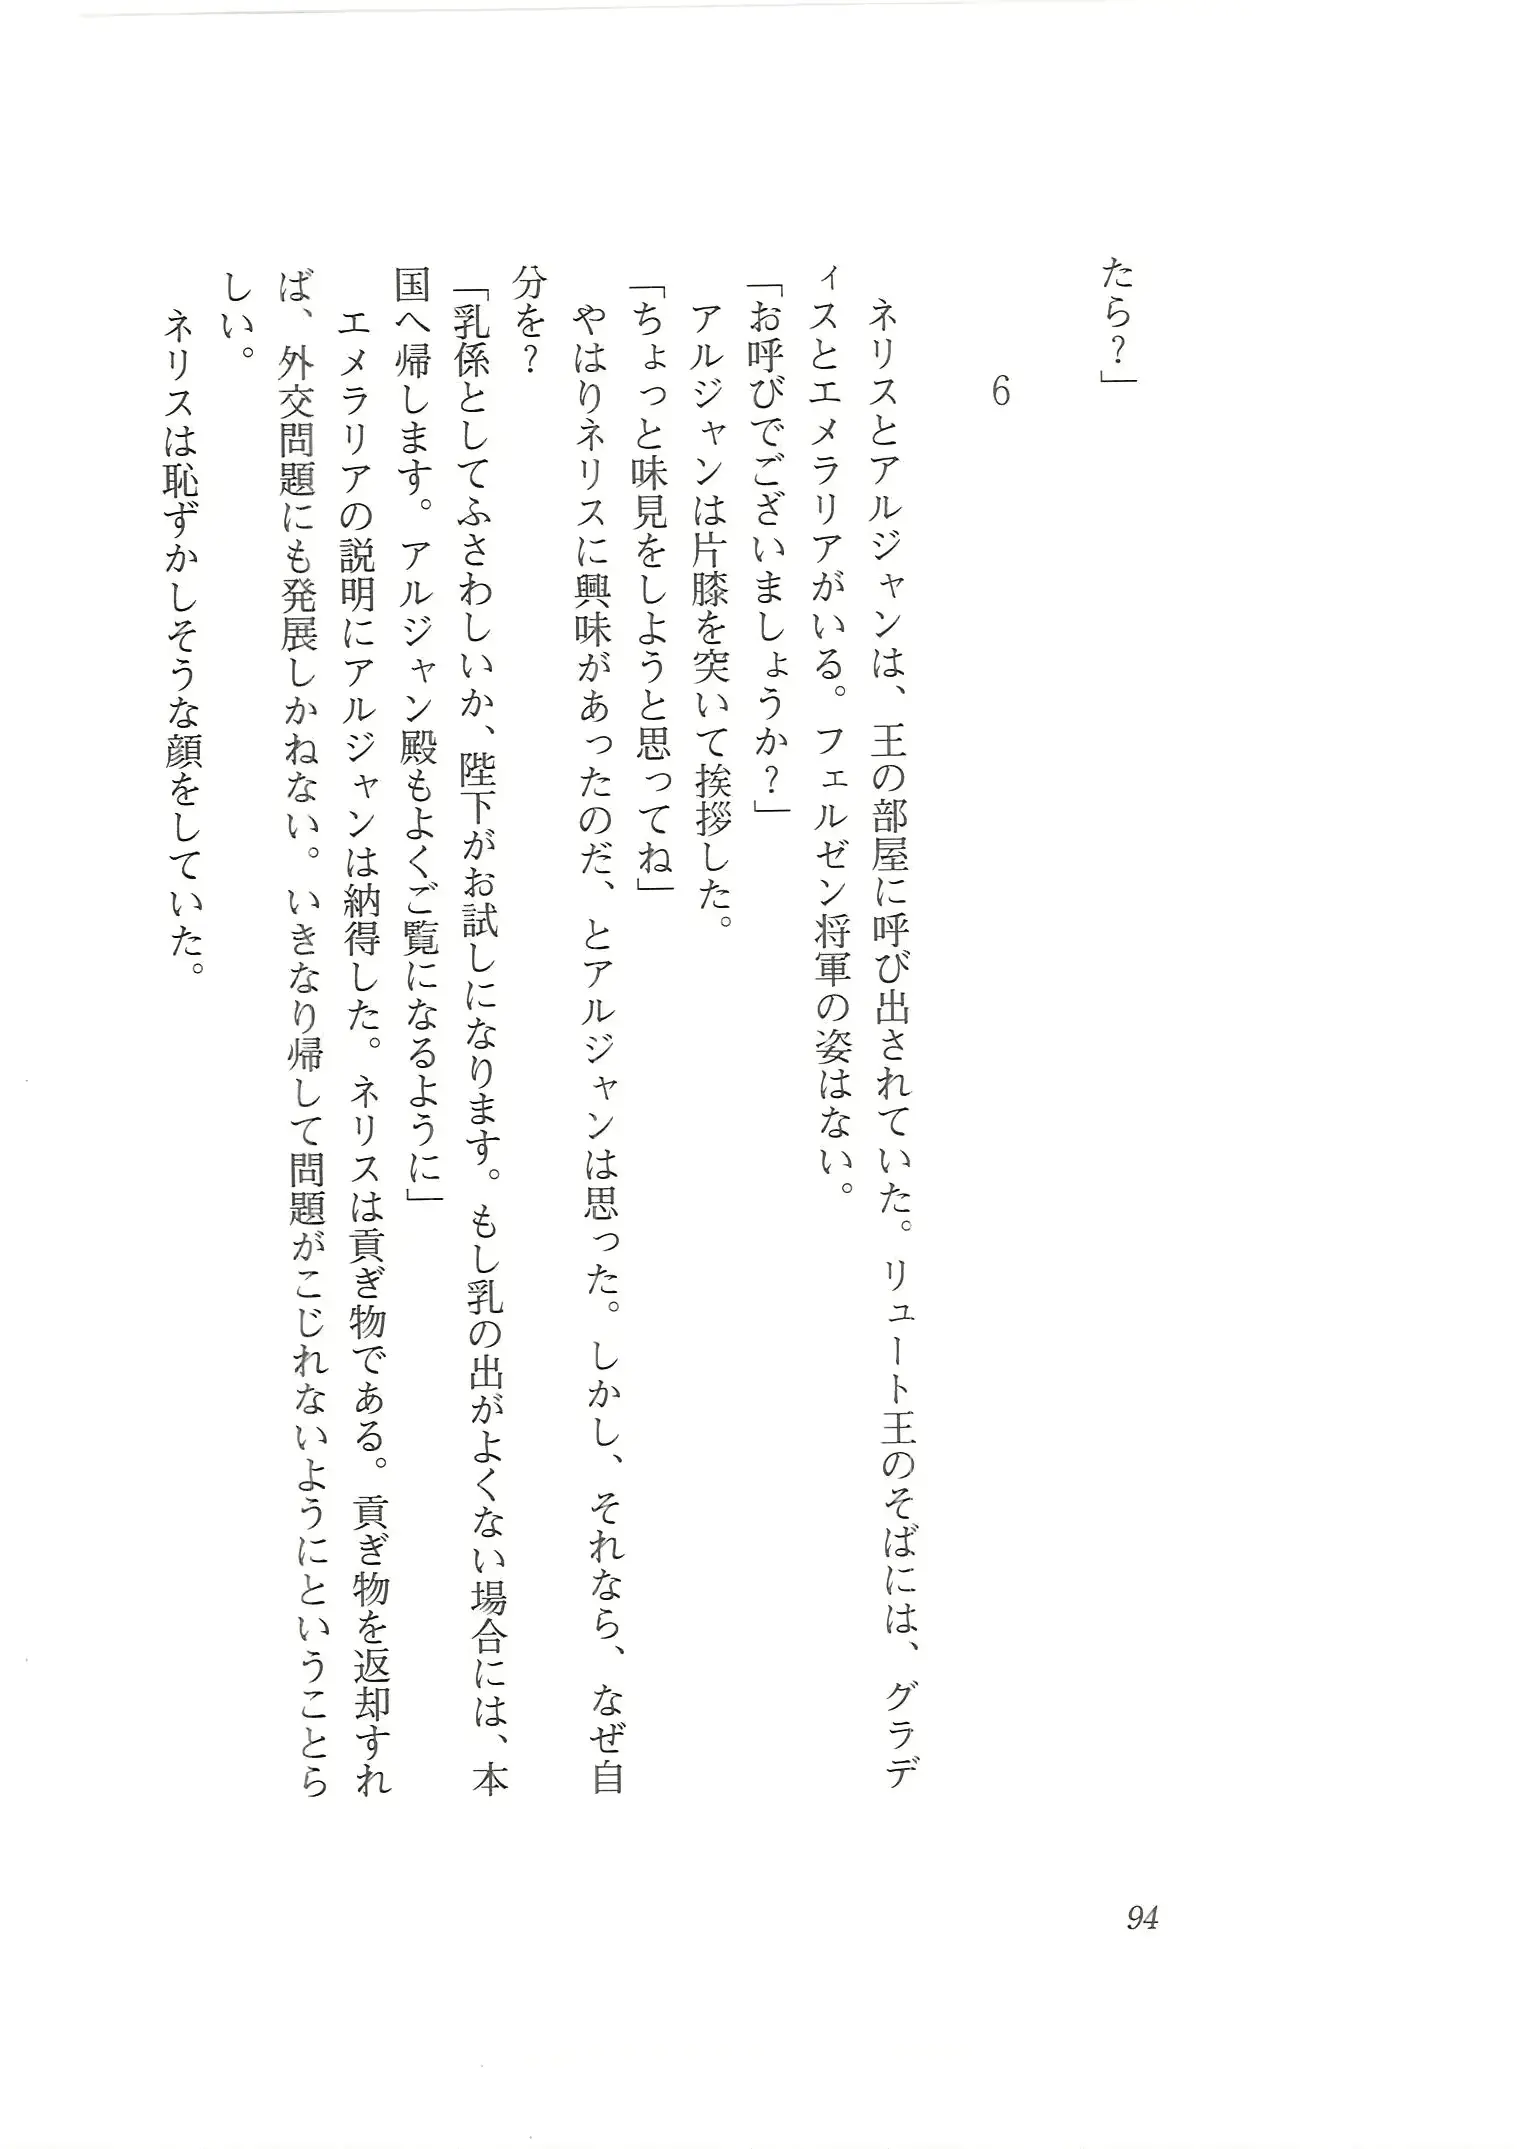 たら？」
6
　ネリスとアルジャンは、王の部屋に呼び出されていた。リュート王のそばには、グラデ
ィスとエメラリアがいる。フェルゼン将軍の姿はない。
「お呼びでございましょうか？」
　アルジャンは片膝を突いて挨拶した。
「ちょっと味見をしようと思ってね」
　やはりネリスに興味があったのだ、とアルジャンは思った。しかし、それなら、なぜ自
分を？
「乳係としてふさわしいか、陛下がお試しになります。もし乳の出がよくない場合には、本
国へ帰します。アルジャン殿もよくご覧になるように」
　エメラリアの説明にアルジャンは納得した。ネリスは貢ぎ物である。貢ぎ物を返却すれ
ば、外交問題にも発展しかねない。いきなり帰して問題がこじれないようにということら
しい。
　ネリスは恥ずかしそうな顔をしていた。
94